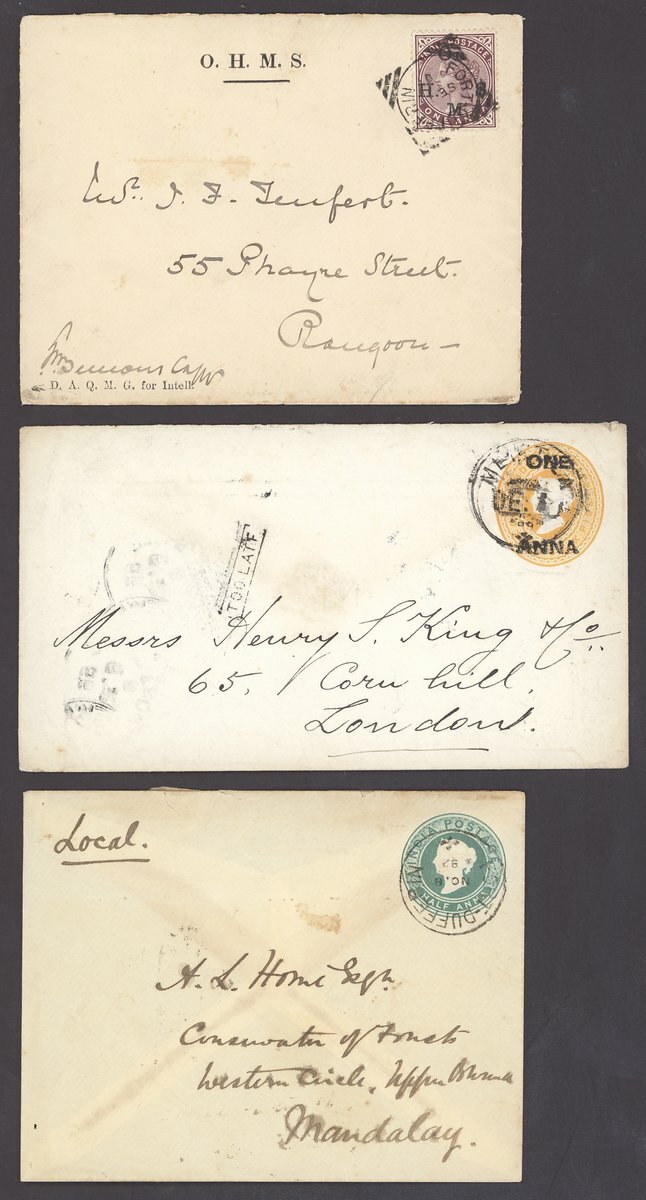 O. H. M. S.
INDIA POSTAGE
On
H. S.
M.
ONE ANNA
FORT
Mr. J. F. Teufert.
55 Phayre Street.
Rangoon
Capt
D. A. Q. M. G. for Intell.
ONE
ANNA
TOO LATE
Messrs Henry S. King & Co.
65, Cornhill,
London.
Local.
INDIA POSTAGE
HALF ANNA
DUFFERIN
NO. 8
92
A. L. Home Esqr.
Conservator of Forests
Western Circle, Upper Burma
Mandalay.